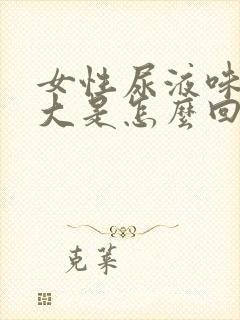 女性尿液味
大是怎麼回
克萊